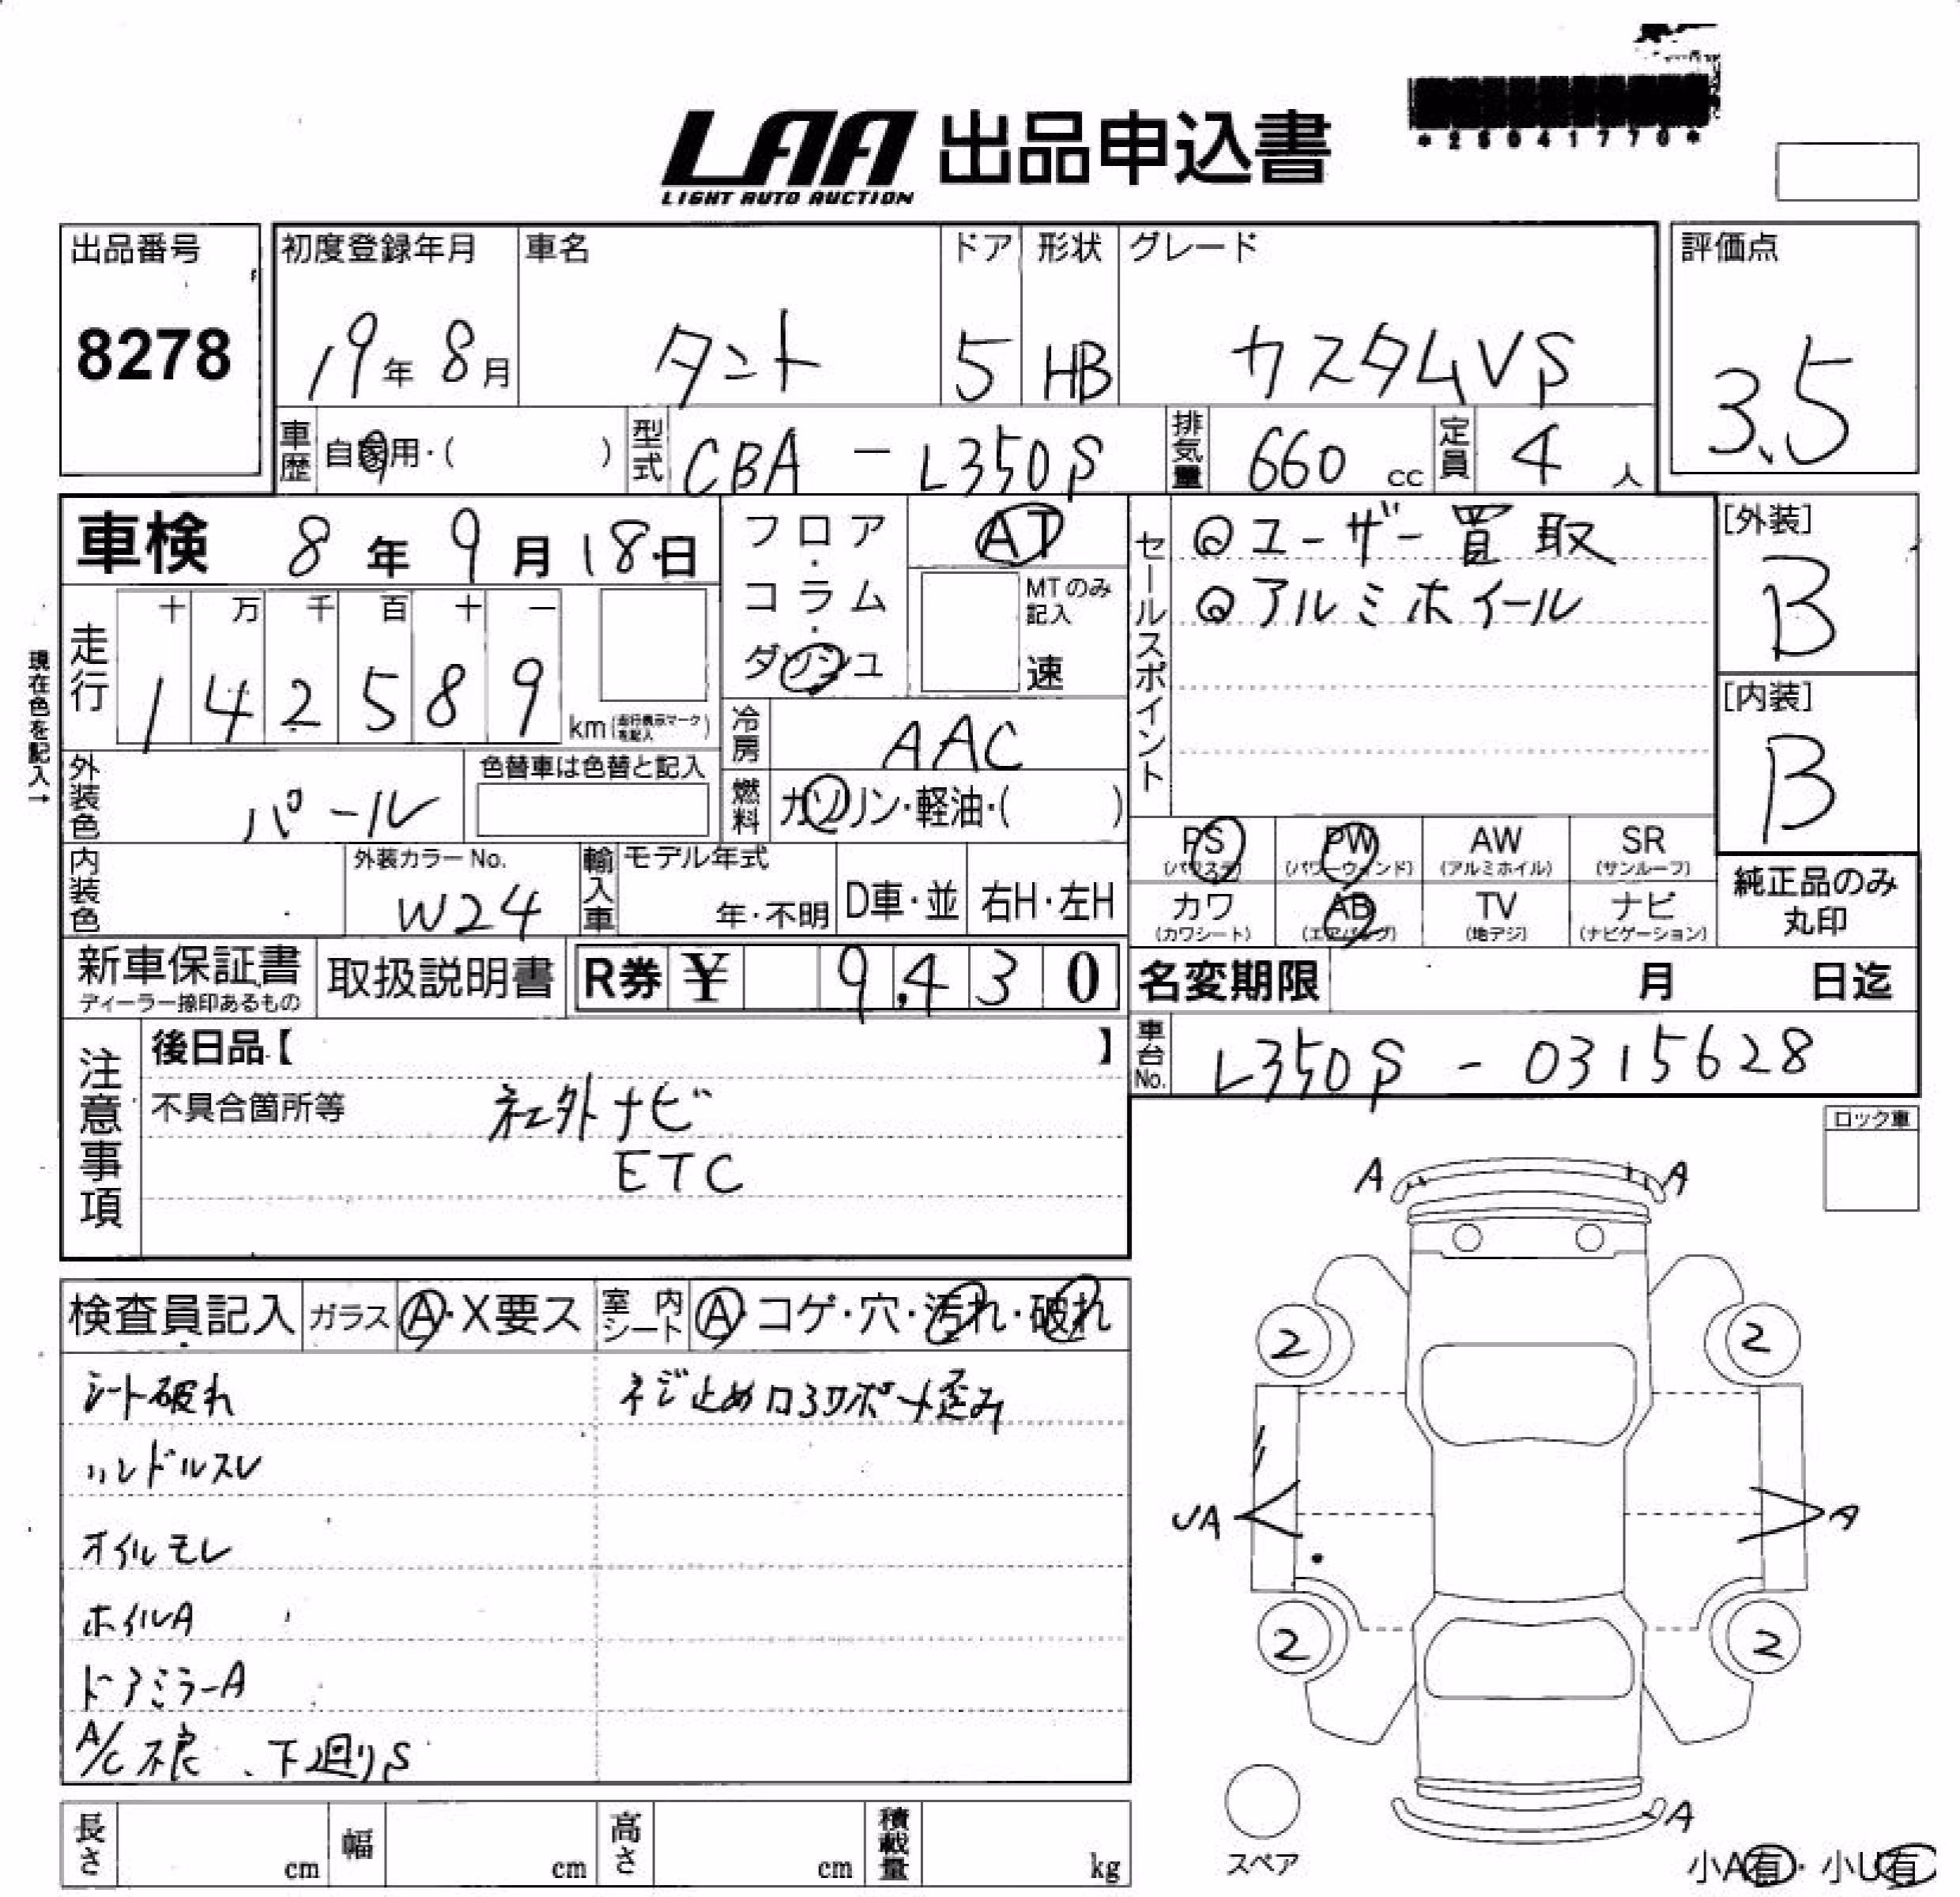 *25041770*
LAA 出品申込書
LIGHT AUTO AUCTION
出品番号
8278
初度登録年月
19年 8月
車名
タント
ドア
5
形状
HB
グレード
カスタムVS
評価点
3.5
車歴 自家用・( )
型式 CBA - L350S
排気量 660 cc
定員 4 人
車検 8年 9月 18日
フロア・コラム・ダッシュ
AT
MTのみ記入
速
セールスポイント
◎ユーザー買取
◎アルミホイール
[外装]
B
[内装]
B
現在色を記入→
走行
十 万 千 百 十 一
1 4 2 5 8 9
km(走行表示マークを記入)
冷房 AAC
外装色 パール
色替車は色替と記入
燃料 ガソリン・軽油・( )
PS (パワステ)
PW (パワーウィンド)
AW (アルミホイル)
SR (サンルーフ)
カワ (カワシート)
AB (エアバッグ)
TV (地デジ)
ナビ (ナビゲーション)
純正品のみ丸印
内装色
外装カラーNo.
W24
輸入車
モデル年式
年・不明
D車・並
右H・左H
新車保証書
ディーラー捺印あるもの
取扱説明書
R券 ¥ 9,430
名変期限 月 日迄
車台No. L350S - 0315628
注意事項
後日品【 】
不具合箇所等 社外ナビ
ETC
ロック車
検査員記入
ガラス A・X要ス
室内シート A・コゲ・穴・汚れ・破れ
シート破れ
ネジ止めロアサポート歪み
ハンドルスレ
オイルモレ
ホイルA
ドアミラーA
A/C不良、下廻りS
A A
2 2
UA A
2 2
A
スペア
小A有・小U有
長さ cm
幅 cm
高さ cm
積載量 kg